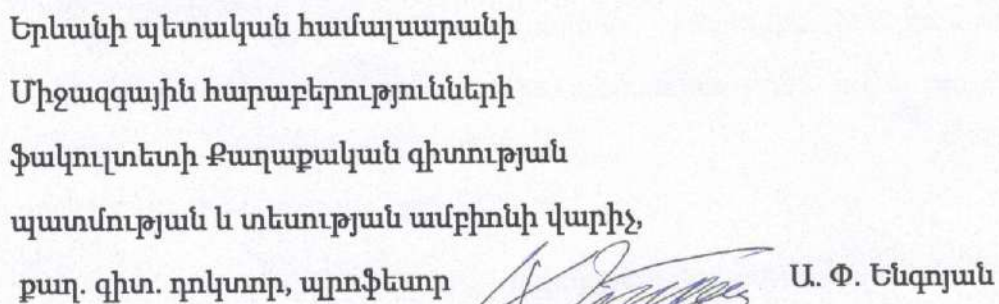 Երևանի պետական համալսարանի
Միջազգային հարաբերությունների
ֆակուլտետի Քաղաքական գիտության
պատմության և տեսության ամբիոնի վարիչ,
քաղ. գիտ. դոկտոր, պրոֆեսոր Ա. Փ. Ենգոյան